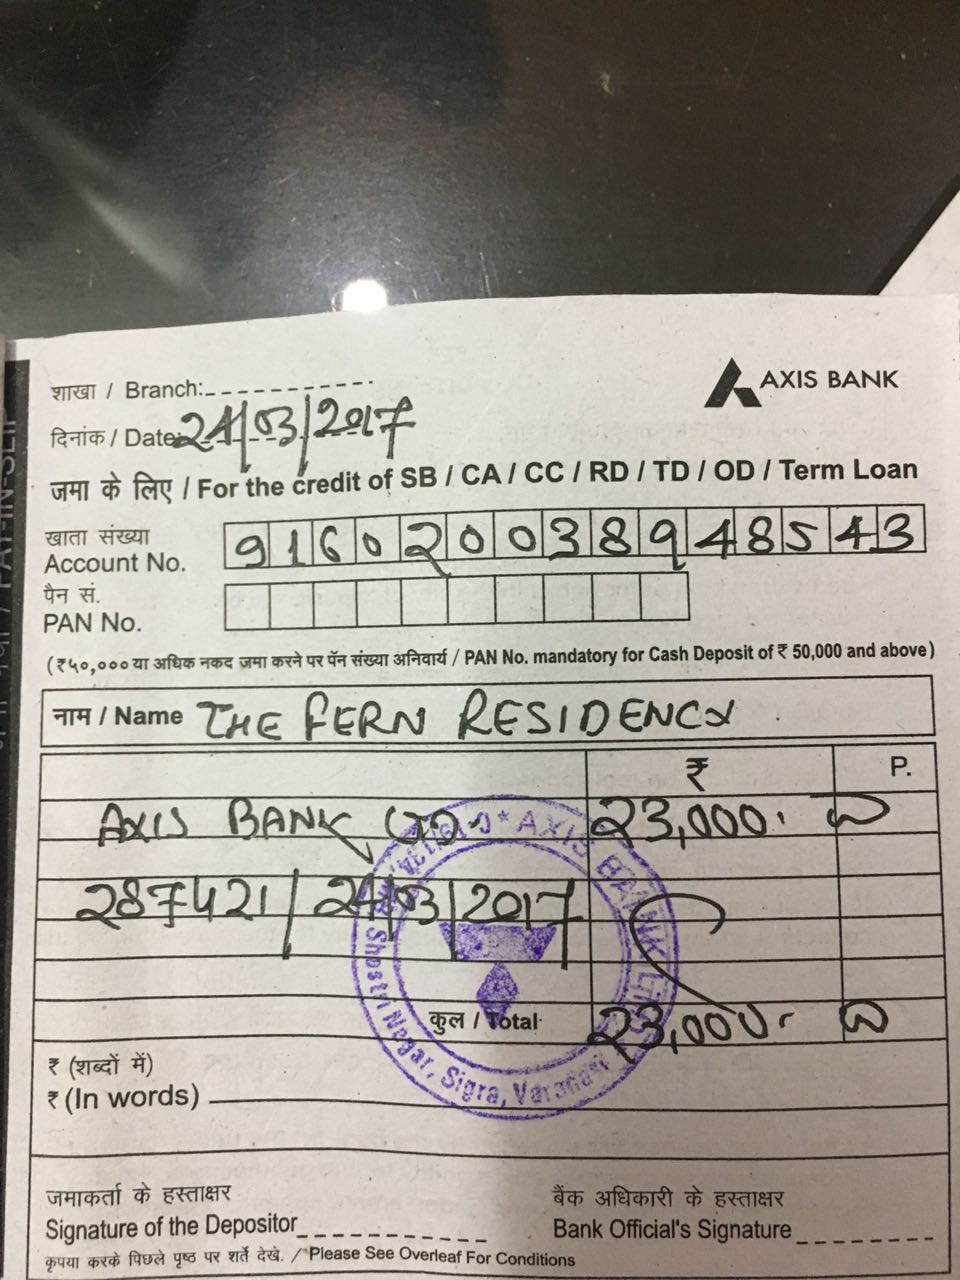 शाखा / Branch:
AXIS BANK
दिनांक / Date: 24/03/2017
जमा के लिए / For the credit of SB / CA / CC / RD / TD / OD / Term Loan
खाता संख्या
Account No. 916020038948543
पैन सं.
PAN No.
(₹५०,००० या अधिक नकद जमा करने पर पॅन संख्या अनिवार्य / PAN No. mandatory for Cash Deposit of ₹ 50,000 and above)
नाम / Name THE FERN RESIDENCY
₹ P.
AXIS BANK 23,000
287421/24/03/2017
कुल / Total 23,000
₹ (शब्दों में)
₹ (In words)
AXIS BANK
Shastri Nagar, Sigra, Varanasi
जमाकर्ता के हस्ताक्षर
Signature of the Depositor
बैंक अधिकारी के हस्ताक्षर
Bank Official's Signature
कृपया करके पिछले पृष्ठ पर शर्ते देखे. / Please See Overleaf For Conditions
PAY-IN-SLIP